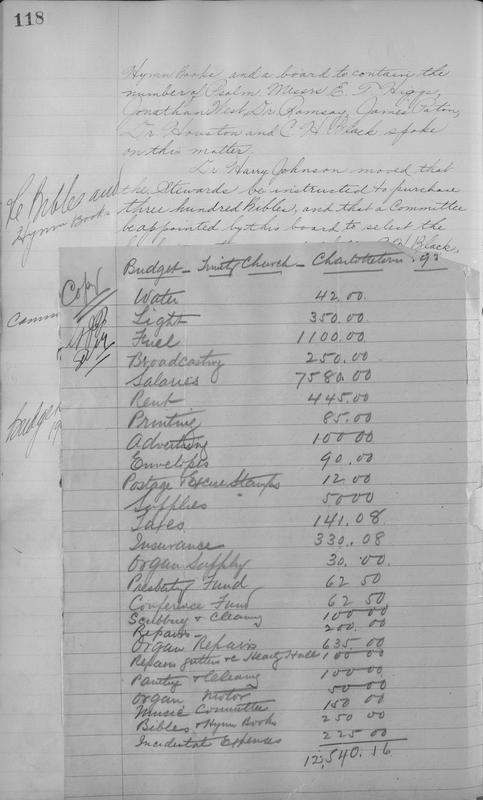 118
Hymn Books and a board to contain the
number of Psalm. Messrs E. T. Higgs,
Jonathan West, Dr. Ramsay, James Paton,
Dr. Houston and C H Black spoke
on this matter.
Dr. Harry Johnson moved that
the Stewards be instructed to purchase
three hundred Bibles, and that a Committee
be appointed by this board to select the
Black,
Re Bibles and
Hymn Books
Comm
Budget
19
Copy
Budget - Trinity Church - Charlottetown
Water 42.00
Light 350.00
Fuel 1100.00
Broadcasting 250.00
Salaries 7580.00
Rent 445.00
Printing 85.00
Advertising 100 00
Envelopes 90.00
Postage & Excise Stamps 12.00
Supplies 50 00
Taxes 141.08
Insurance 330.08
Organ Supply 30.00
Presbytery Fund 62 50
Conference Fund 62 50
Scrubbing & Cleaning 100 00
Repairs 200.00
Organ Repairs 635.00
Repairs gutters &c Heartz Hall 100 00
Painting & Cleaning 100 00
Organ Motor 50 00
Music Committee 150 00
Bibles & Hymn Books 250 00
Incidental Expenses 225 00
12,540.16